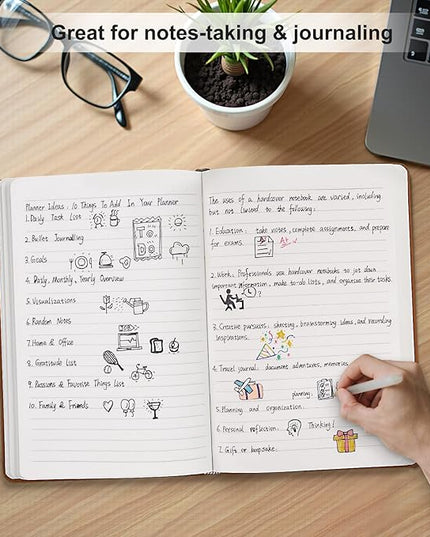 Great for notes-taking & journaling
Planner Ideas: 10 Things To Add In Your Planner
1. Daily Task List
2. Bullet Journalling
3. Goals
4. Daily, Monthly, Yearly Overview
5. Visualizations
6. Random Notes
7. Home & Office
8. Gratitude List
9. Passions & Favorite Things List
10. Family & Friends
To
Do
The uses of a hardcover notebook are varied, including
but not limited to the following:
1. Education: take notes, complete assignments, and prepare
for exams.
A+
2. Work: Professionals use hardcover notebooks to jot down
important information, make to-do lists, and organize their tasks.
?
3. Creative pursuits: sketching, brainstorming ideas, and recording
inspirations.
4. Travel journal: document adventures, memories
planning:
5. Planning and organization.
6. Personal reflection: Thinking!
7. Gifts or keepsake.